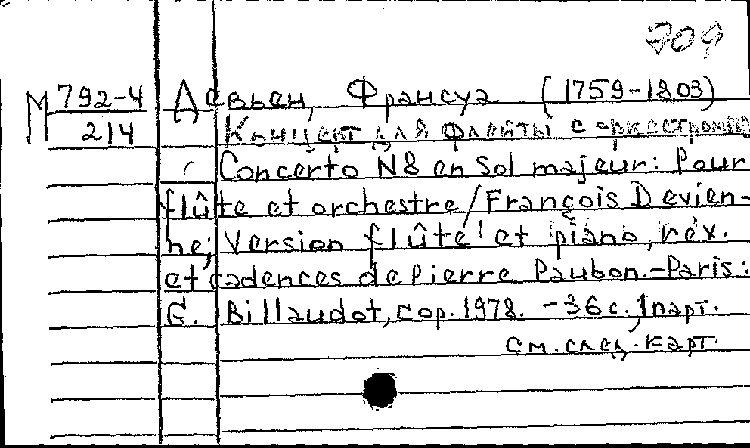 709
М 792-4 Девьен, Франсуа (1759-1803)
214 Концерт для флейты с оркестром
Concerto N8 en sol majeur: Pour
flûte et orchestre/François Devien-
ne; Version flûte et piano, rév.
et cadences de Pierre Paubon.-Paris:
G. Billaudot, cop. 1978. - 36 с., 1 парт.
см. след. карт.